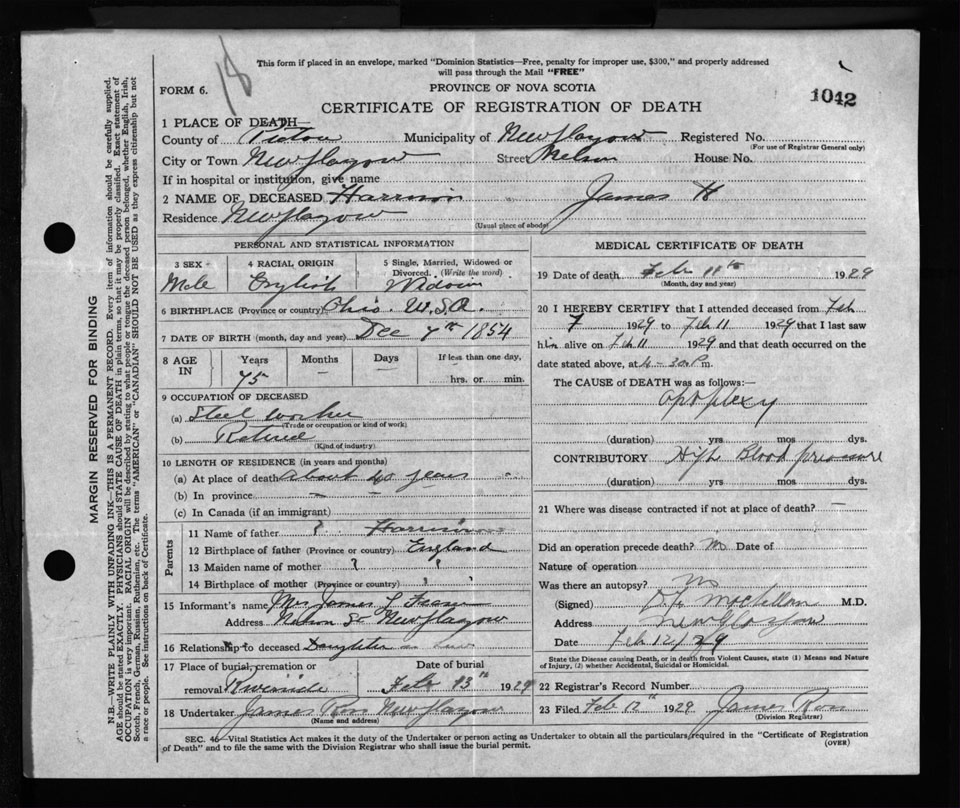 18
This form if placed in an envelope, marked "Dominion Statistics—Free, penalty for improper use, $300," and properly addressed
will pass through the Mail "FREE"
FORM 6.
PROVINCE OF NOVA SCOTIA
1042
CERTIFICATE OF REGISTRATION OF DEATH
1 PLACE OF DEATH—
County of Pictou Municipality of New Glasgow Registered No.
(For use of Registrar General only)
City or Town New Glasgow Street Nelson House No.
If in hospital or institution, give name
2 NAME OF DECEASED Harrison James H
Residence New Glasgow
(Usual place of abode)
PERSONAL AND STATISTICAL INFORMATION
3 SEX 4 RACIAL ORIGIN 5 Single, Married, Widowed or
Divorced. (Write the word)
Male English Widower
6 BIRTHPLACE (Province or country) Ohio. U.S.A.
7 DATE OF BIRTH (month, day and year) Dec 7th 1854
8 AGE IN Years Months Days If less than one day,
75 — — hrs. or min.
9 OCCUPATION OF DECEASED
(a) Steel worker
(Trade or occupation or kind of work)
(b) Retired
(Kind of industry)
10 LENGTH OF RESIDENCE (in years and months)
(a) At place of death about 40 years
(b) In province — —
(c) In Canada (if an immigrant)
Parents
11 Name of father ? Harrison
12 Birthplace of father (Province or country) England
13 Maiden name of mother ? ?
14 Birthplace of mother (Province or country) ? ?
15 Informant's name Mrs James L
Address Nelson St New Glasgow
16 Relationship to deceased Daughter in law
17 Place of burial, cremation or Date of burial
removal Riverside Feb 13th 1929
18 Undertaker James Ross New Glasgow
(Name and address)
MEDICAL CERTIFICATE OF DEATH
19 Date of death Feb 11th 1929
(Month, day and year)
20 I HEREBY CERTIFY that I attended deceased from Feb
7 1929 to Feb 11 1929 that I last saw
him alive on Feb 11 1929 and that death occurred on the
date stated above, at 4-30 P m.
The CAUSE of DEATH was as follows:—
apoplexy
(duration) yrs mos dys.
CONTRIBUTORY High Blood pressure
(duration) yrs. mos. dys.
21 Where was disease contracted if not at place of death? —
Did an operation precede death? no Date of
Nature of operation
Was there an autopsy? no
(Signed) McLellan M.D.
Address New Glasgow
Date Feb 12/29
State the Disease causing Death, or in death from Violent Causes, state (1) Means and Nature
of Injury, (2) whether Accidental, Suicidal or Homicidal.
22 Registrar's Record Number
23 Filed Feb 1929 James Ross
(Division Registrar)
SEC. 46—Vital Statistics Act makes it the duty of the Undertaker or person acting as Undertaker to obtain all the particulars required in the "Certificate of Registration
of Death" and to file the same with the Division Registrar who shall issue the burial permit.
(OVER)
MARGIN RESERVED FOR BINDING
N.B.—WRITE PLAINLY WITH UNFADING INK—THIS IS A PERMANENT RECORD. Every item of information should be carefully supplied.
AGE should be stated EXACTLY. PHYSICIANS should STATE CAUSE OF DEATH in plain terms, so that it may be properly classified. Exact statement of
OCCUPATION is very important. RACIAL ORIGIN will be described by stating to what people or tongue the deceased person belonged, whether English, Irish,
Scotch, French, German, Russian, Ruthenian, etc. The terms "AMERICAN" or "CANADIAN" SHOULD NOT BE USED as they express citizenship but not
a race or people. See instructions on back of Certificate.